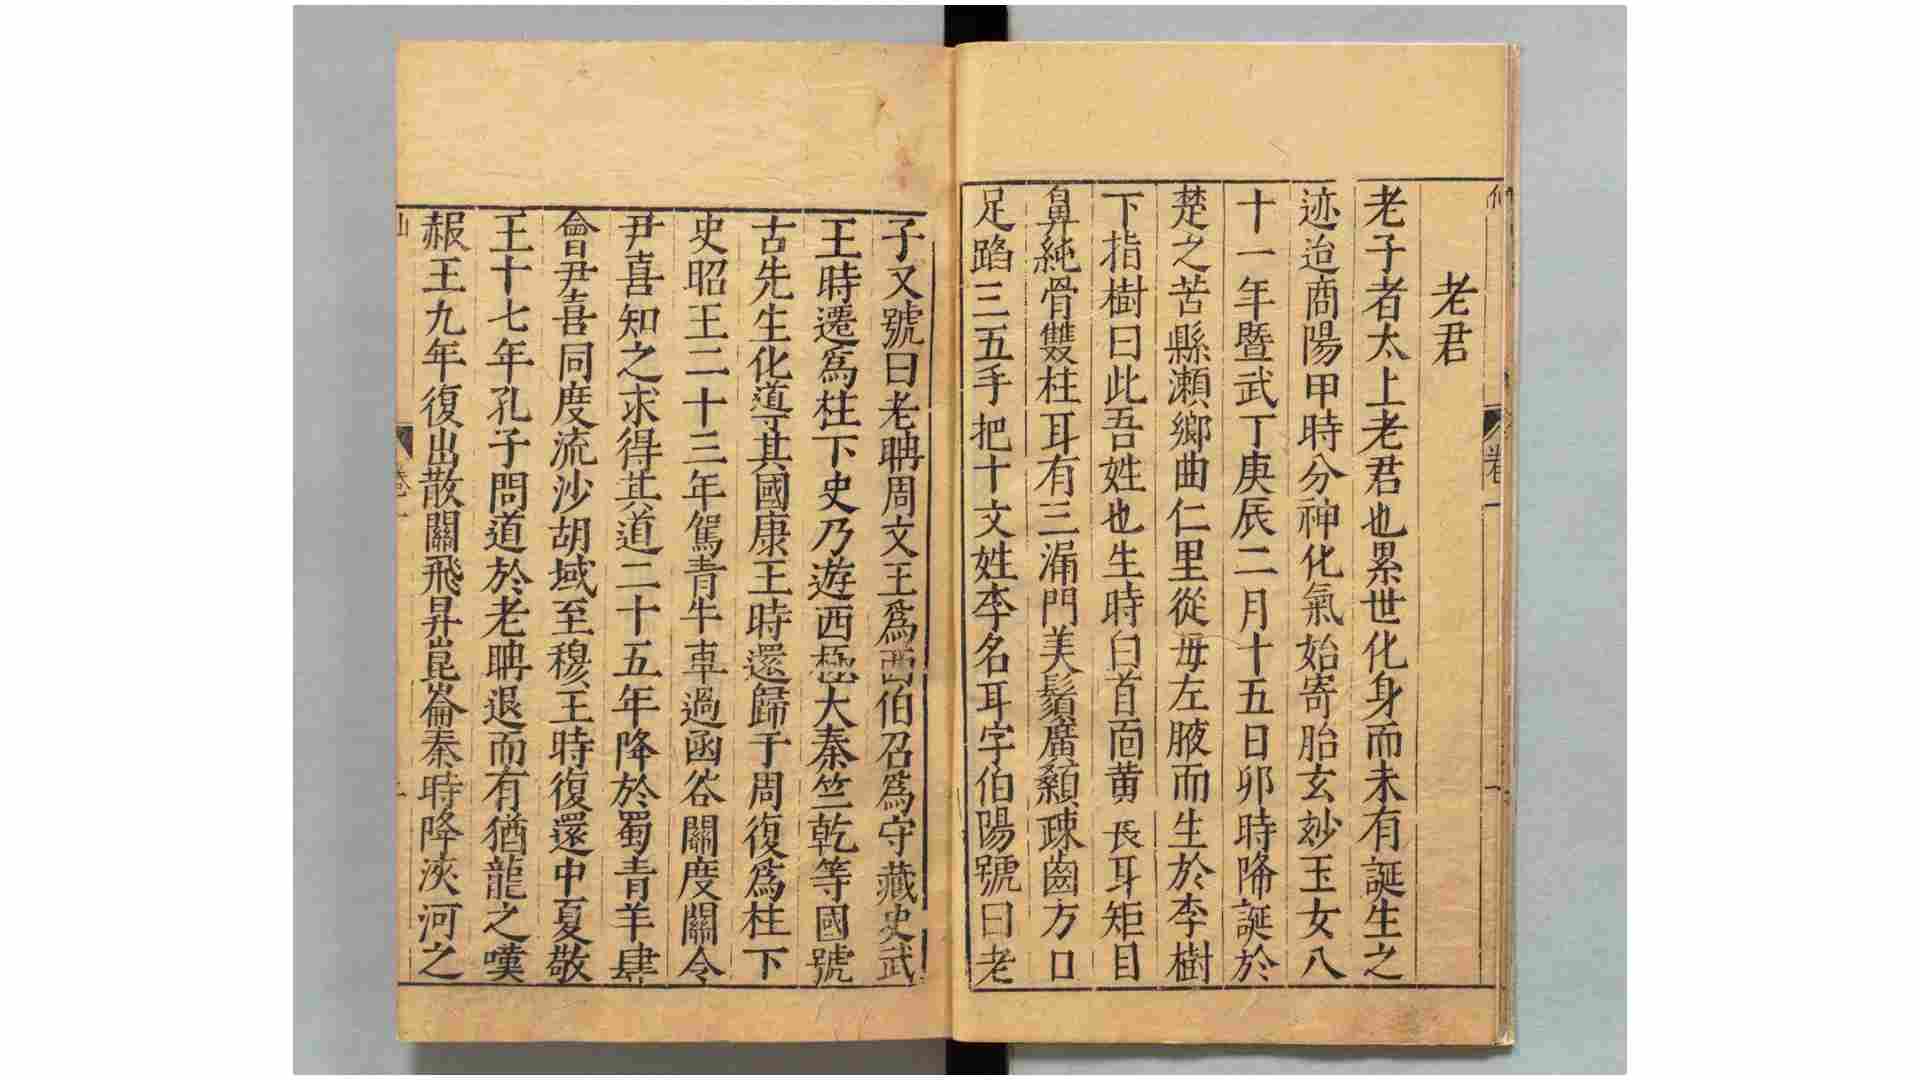 老君
老子者太上老君也累世化身而未有誕生之
迹迨商陽甲時分神化氣始寄胎玄玅玉女八
十一年暨武丁庚辰二月十五日卯時降誕於
楚之苦縣瀨鄉曲仁里從母左腋而生於李樹
下指樹曰此吾姓也生時白首面黃長耳矩目
鼻純骨雙柱耳有三漏門美鬚廣顙疎齒方口
足蹈三五手把十文姓李名耳字伯陽號曰老
子又號曰老聃周文王爲西伯召爲守藏史武
王時遷爲柱下史乃遊西極大秦竺乾等國號
古先生化導其國康王時還歸于周復爲柱下
史昭王二十三年駕青牛車過函谷關度關令
尹喜知之求得其道二十五年降於蜀青羊肆
會尹喜同度流沙胡域至穆王時復還中夏敬
王十七年孔子問道於老聃退而有猶龍之嘆
赧王九年復出散關飛昇崑崙秦時降浹河之
卷一